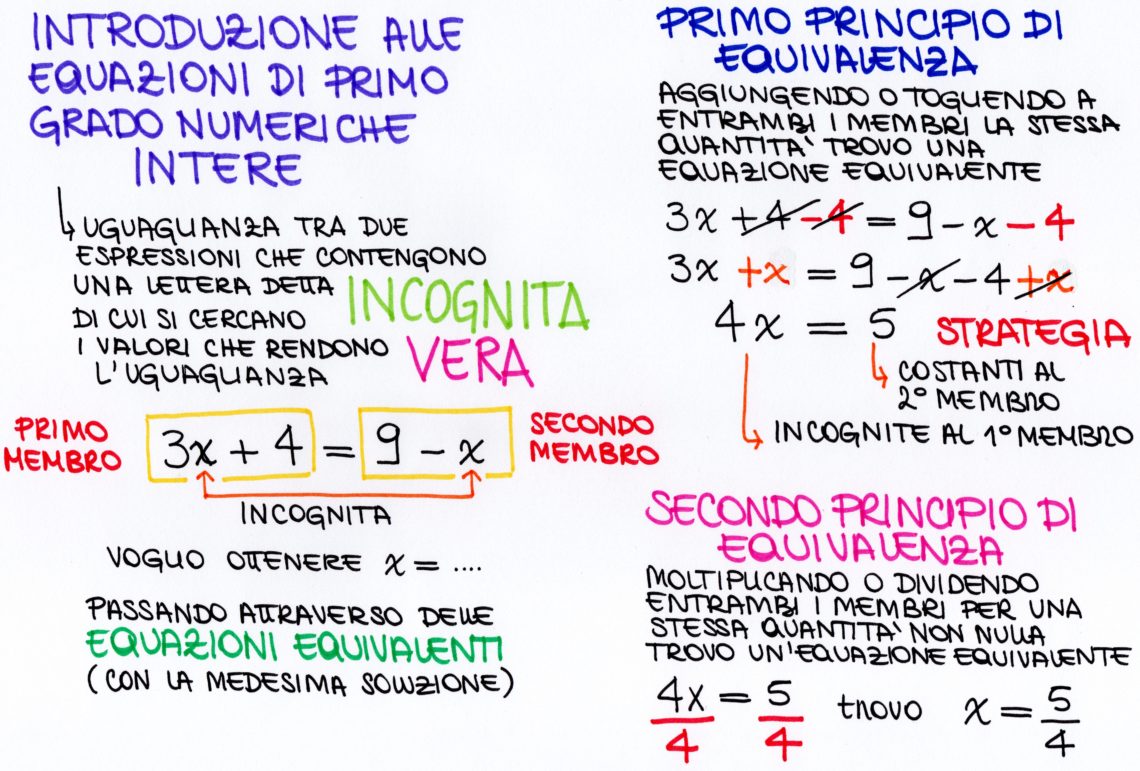 INTRODUZIONE ALLE
EQUAZIONI DI PRIMO
GRADO NUMERICHE
INTERE
UGUAGLIANZA TRA DUE
ESPRESSIONI CHE CONTENGONO
UNA LETTERA DETTA INCOGNITA
DI CUI SI CERCANO
I VALORI CHE RENDONO VERA
L'UGUAGLIANZA
PRIMO
MEMBRO
3x + 4 = 9 - x
SECONDO
MEMBRO
INCOGNITA
VOGLIO OTTENERE x = ....
PASSANDO ATTRAVERSO DELLE
EQUAZIONI EQUIVALENTI
(CON LA MEDESIMA SOLUZIONE)
PRIMO PRINCIPIO DI
EQUIVALENZA
AGGIUNGENDO O TOGLIENDO A
ENTRAMBI I MEMBRI LA STESSA
QUANTITA' TROVO UNA
EQUAZIONE EQUIVALENTE
3x +4 -4 = 9 - x - 4
3x +x = 9 - x - 4 + x
4x = 5
STRATEGIA
COSTANTI AL
2° MEMBRO
INCOGNITE AL 1° MEMBRO
SECONDO PRINCIPIO DI
EQUIVALENZA
MOLTIPLICANDO O DIVIDENDO
ENTRAMBI I MEMBRI PER UNA
STESSA QUANTITA' NON NULLA
TROVO UN'EQUAZIONE EQUIVALENTE
4x/4 = 5/4 trovo x = 5/4